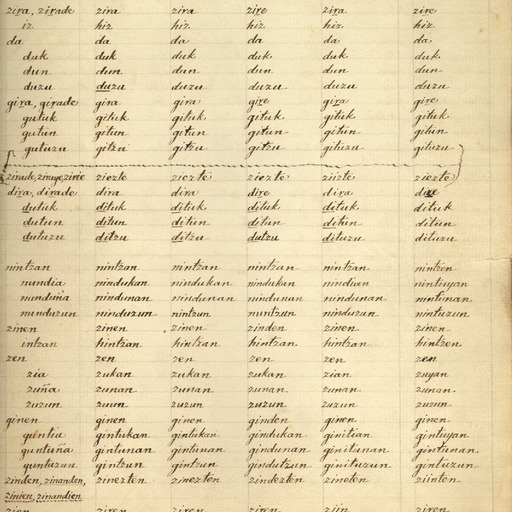 zira, zirade zira zira zire zira zire
iz hiz hiz hiz hiz hiz
da da da da da da
duk duk duk duk duk duk
dun dun dun dun dun dun
duzu duzu duzu duzu duzu duzu
gira, girade gira gira gire gira gire
gutuk gituk gituk gituk gituk gituk
gutun gitun gitun gitun gitun gitun
gutuzu gitzu gitzu gitzu gituzu gituzu
zirade, ziraye, zirie ziezte ziezte ziezte ziizte ziezte
dira, dirade dira dira dire dira dire
dutuk dituk dituk dituk dituk dituk
dutun ditun ditun ditun ditun ditun
dutuzu ditzu ditzu dutzu dituzu dituzu
nintzan nintzan nintzan nintzan nintzan nintzen
nundia nindukan nindukan nindukan nindian nintuyan
nunduña nindunan nindunan nindunan nindunan nintunan
nunduzun ninduzun nintzun nuntzun ninduzun nintuzun
zinen zinen zinen zinden zinen zinen
intzan hintzan hintzan hintzan hintzan hintzen
zen zen zen zen zen zen
zia zukan zukan zukan zian zuyan
zuña zunan zunan zunan zunan zunan
zuzun zuun zuzun zuzun zuzun zuzun
ginen ginen ginen ginden ginen ginen
guntia gintukan gintukan gindukan ginitian gintuyan
guntuña gintunan gintunan gindunan ginitunan gintunan
guntuzun gintzun gintzun gindutzun ginituzun gintuzun
zinden, zinanden, zinezten zinezten zindezten zineten ziinten
zinien, zinandien
zien ziren ziren ziren ziin ziren